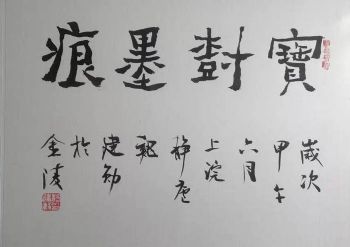 寶墨痕
歲次
甲午
六月
上浣
靜廬
建勛
於
金陵